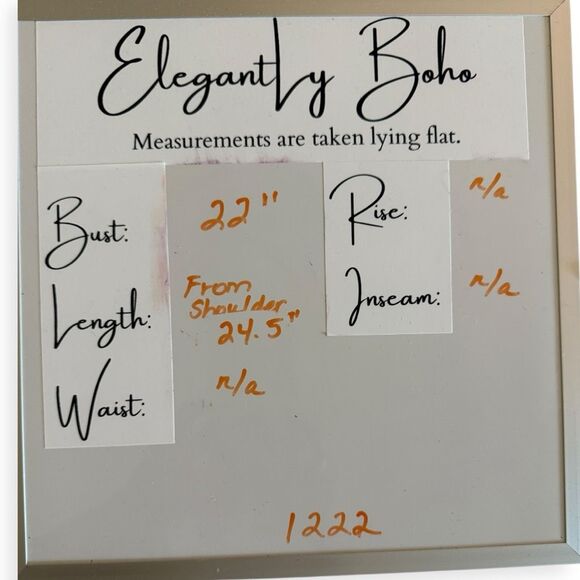 Elegantly Boho
Measurements are taken lying flat.
Bust: 22"
Length: From Shoulder 24.5"
Waist: n/a
Rise: n/a
Inseam: n/a
1222